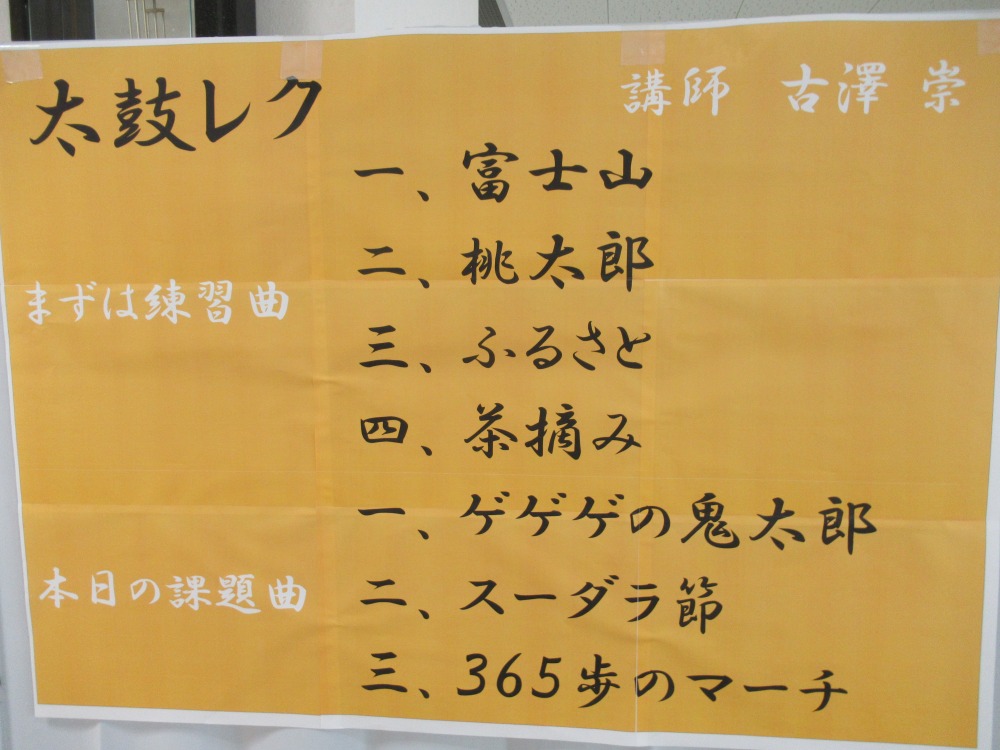 太鼓レク
講師 古澤 崇
一、富士山
二、桃太郎
まずは練習曲
三、ふるさと
四、茶摘み
一、ゲゲゲの鬼太郎
本日の課題曲
二、スーダラ節
三、365歩のマーチ